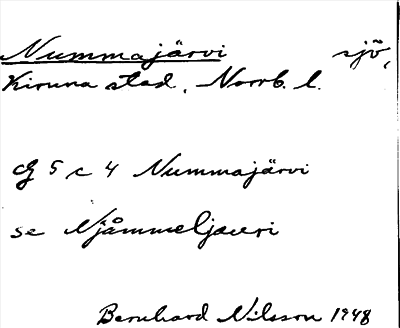 Nummajärvi sjö,
Kiruna stad, Norrb. l.
G 5 c 4 Nummajärvi
se Njåmmeljauri
Bernhard Nilsson 1948